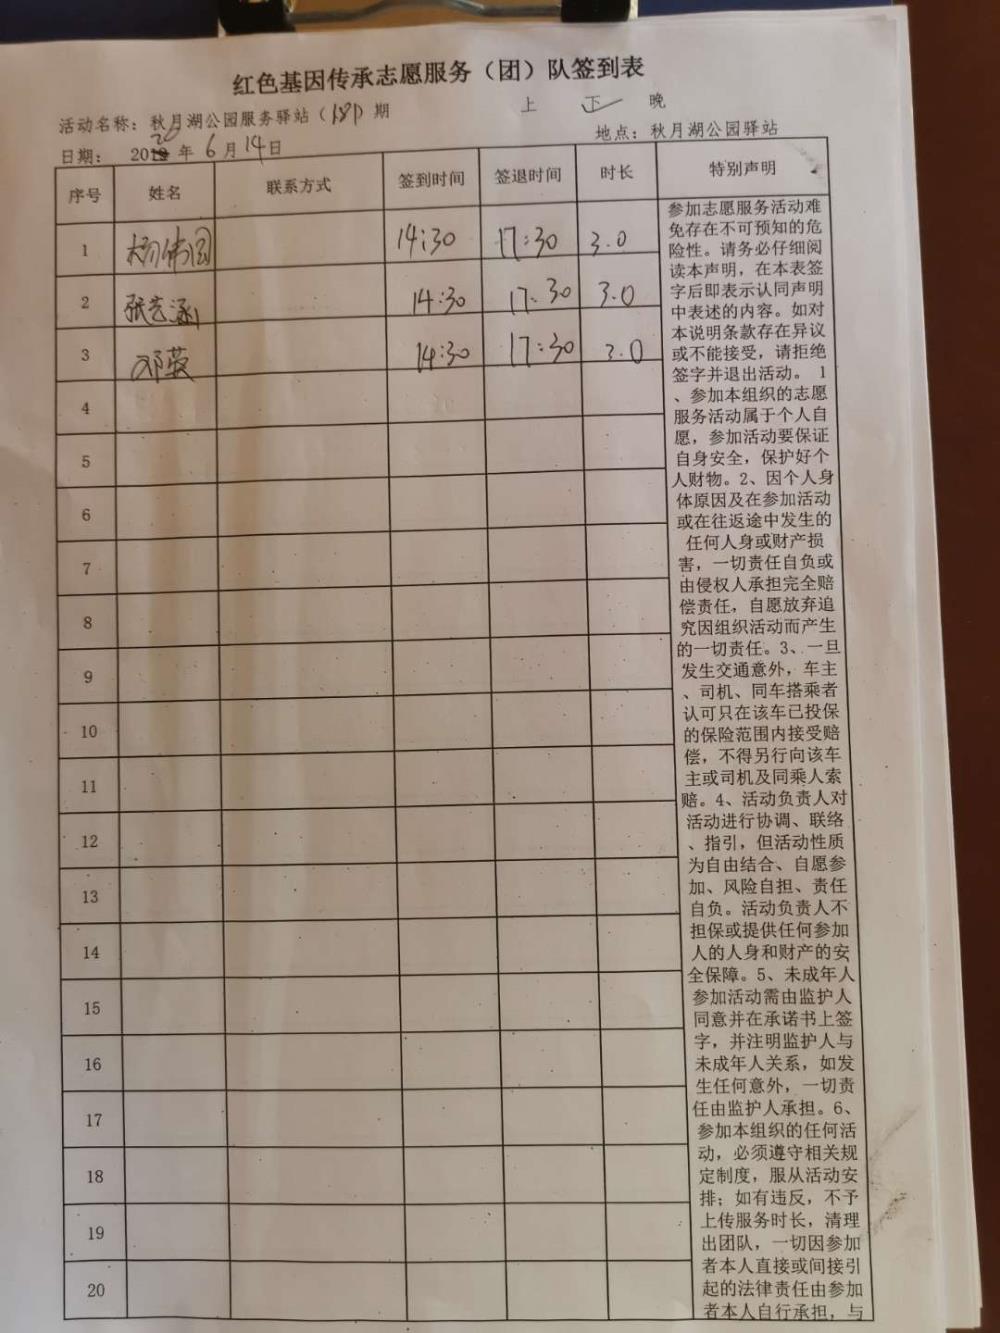 红色基因传承志愿服务（团）队签到表
活动名称：秋月湖公园服务驿站（181）期 上 下 晚
日期： 2020 年 6 月 14 日 地点：秋月湖公园驿站
序号 姓名 联系方式 签到时间 签退时间 时长 特别声明
1 杨伟国 14:30 17:30 3.0
2 张艺涵 14:30 17:30 3.0
3 邓蓉 14:30 17:30 3.0
4
5
6
7
8
9
10
11
12
13
14
15
16
17
18
19
20
参加志愿服务活动难
免存在不可预知的危
险性。请务必仔细阅
读本声明，在本表签
字后即表示认同声明
中表述的内容。如对
本说明条款存在异议
或不能接受，请拒绝
签字并退出活动。 1
、参加本组织的志愿
服务活动属于个人自
愿，参加活动要保证
自身安全，保护好个
人财物。2、因个人身
体原因及在参加活动
或在往返途中发生的
任何人身或财产损
害，一切责任自负或
由侵权人承担完全赔
偿责任，自愿放弃追
究因组织活动而产生
的一切责任。3、一旦
发生交通意外，车主
、司机、同车搭乘者
认可只在该车已投保
的保险范围内接受赔
偿，不得另行向该车
主或司机及同乘人索
赔。4、活动负责人对
活动进行协调、联络
、指引，但活动性质
为自由结合、自愿参
加、风险自担、责任
自负。活动负责人不
担保或提供任何参加
人的人身和财产的安
全保障。5、未成年人
参加活动需由监护人
同意并在承诺书上签
字，并注明监护人与
未成年人关系，如发
生任何意外，一切责
任由监护人承担。6、
参加本组织的任何活
动，必须遵守相关规
定制度，服从活动安
排；如有违反，不予
上传服务时长，清理
出团队，一切因参加
者本人直接或间接引
起的法律责任由参加
者本人自行承担，与